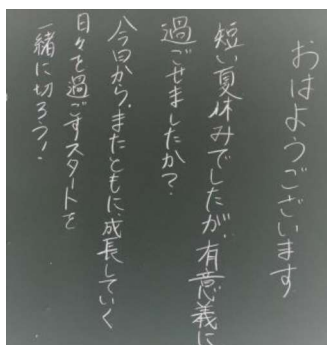 おはようございます
短い夏休みでしたが、有意義に
過ごせましたか？
今日から、またともに成長していく
日々を過ごすスタートを
一緒に切ろう！